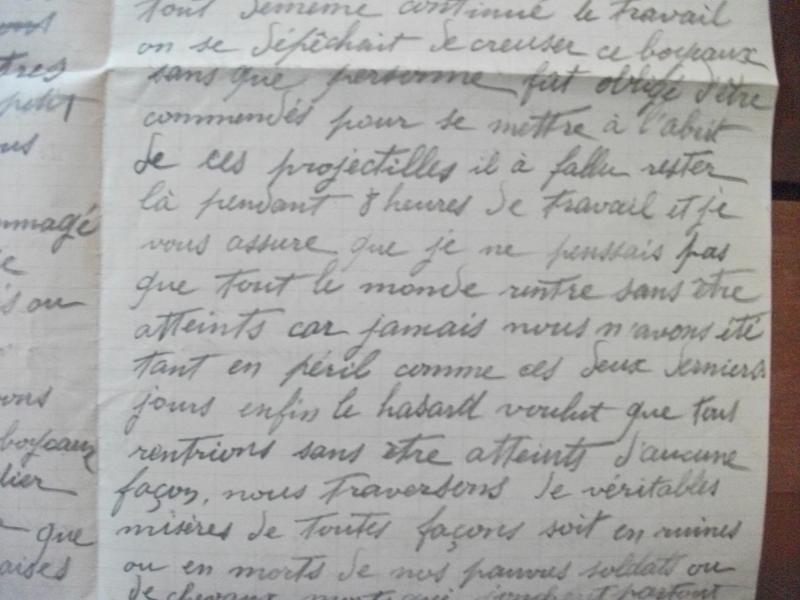 tout demème continué le travail
on se dépêchait de creuser ce boyeaux
sans que personne fut obligé d'être
commendés pour se mettre à l'abrit
de ces projectilles il à fallu rester
là pendant 8 heures de travail et je
vous assure que je ne penssais pas
que tout le monde rentre sans etre
atteints car jamais nous n'avons été
tant en péril comme ces deux derniers
jours enfin le hasard voulut que tous
rentrions sans etre atteints d'aucune
façon, nous traversons de véritables
misères de toutes façons soit en ruines
ou en morts de nos pauvres soldats ou
de chevaux morts qui partout
tres
petit
us
mmagé
e
is ou
ons
boyeaux
lier
que
aises